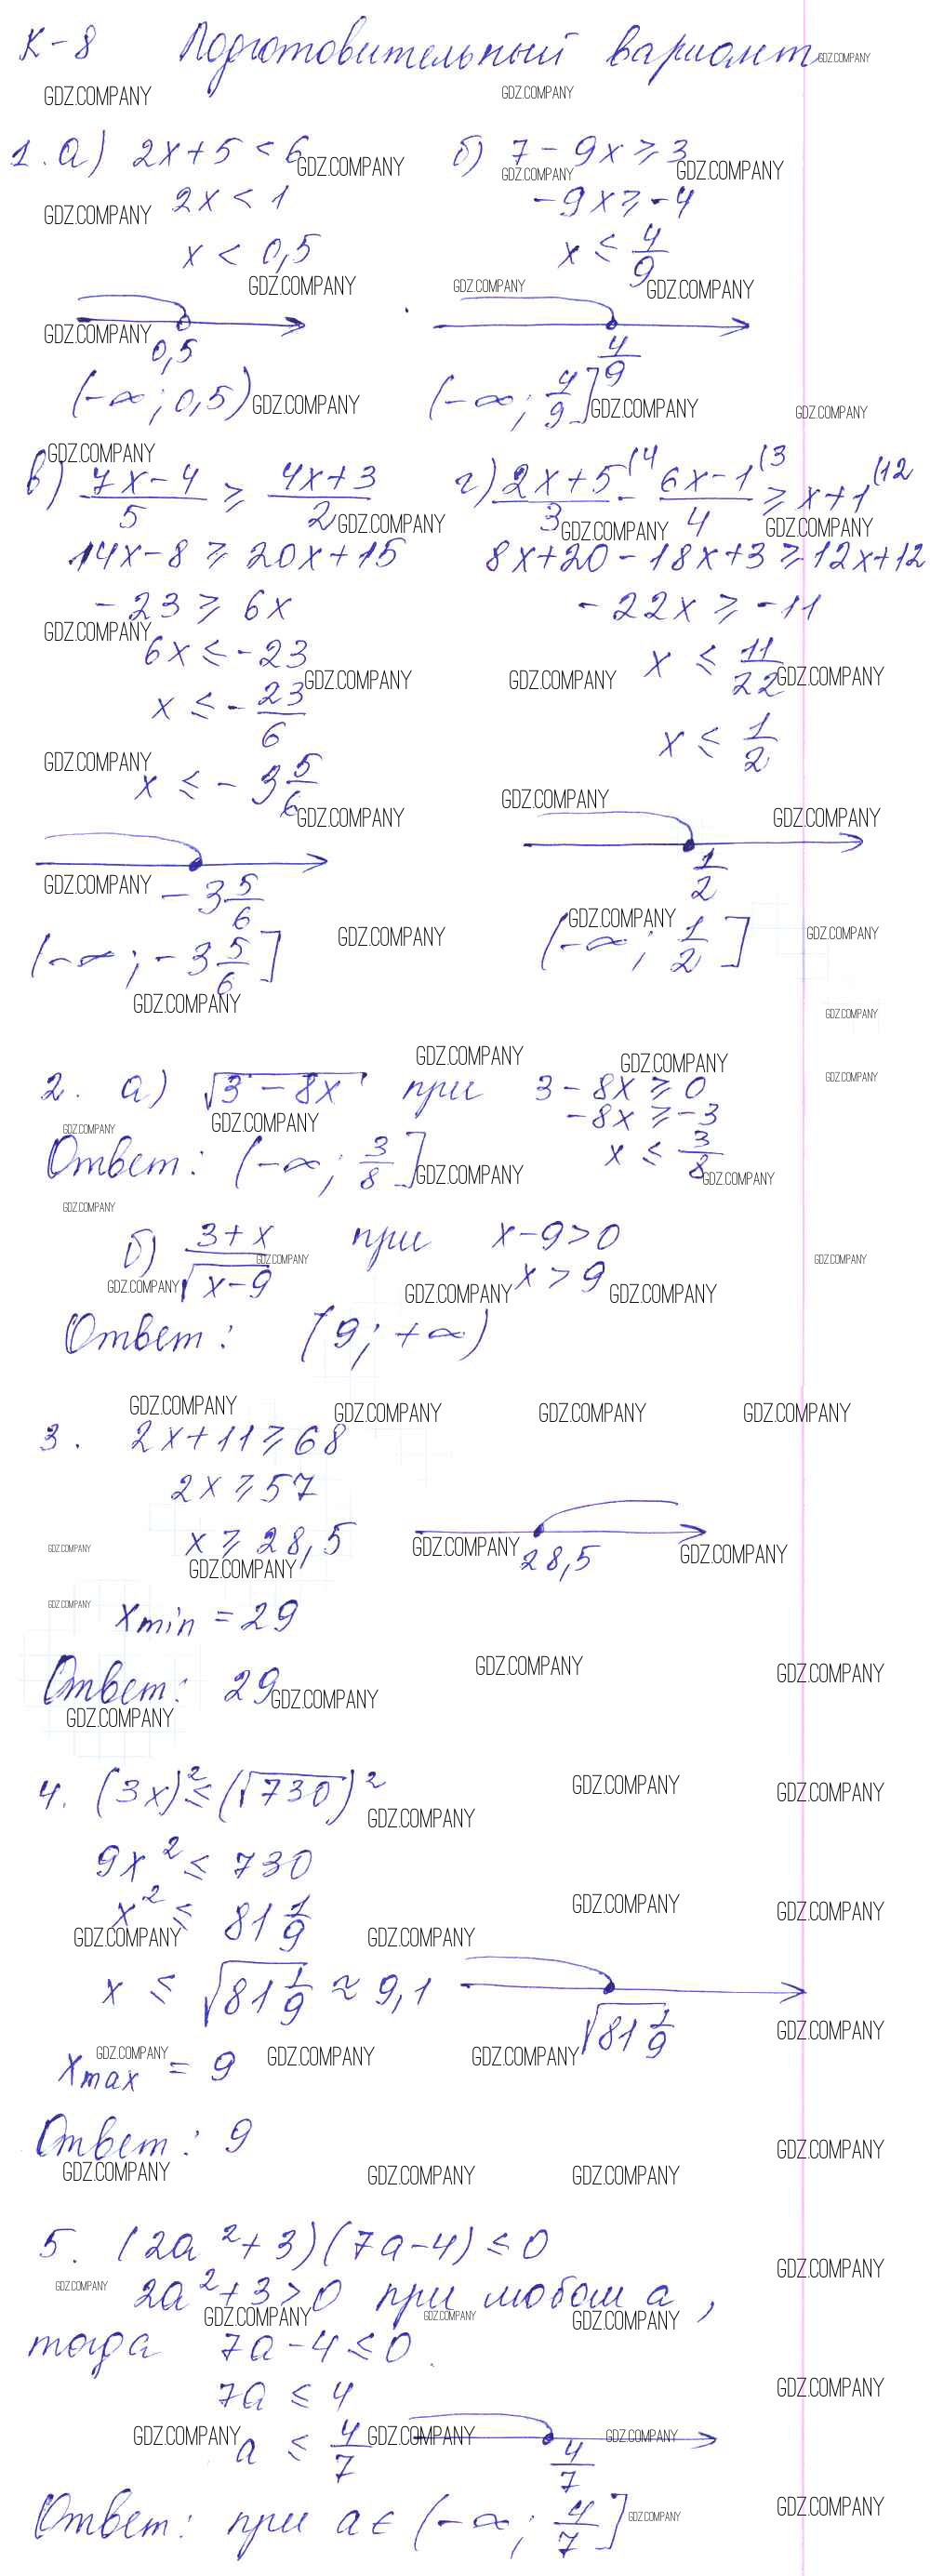 К-8 Подготовительный вариант
1. а) 2x+5 < 6
2x < 1
x < 0,5
0,5
(-∞; 0,5)
б) 7 - 9x ≥ 3
-9x ≥ -4
x ≤ 4/9
4/9
(-∞; 4/9]
в) (7x-4)/5 ≥ (4x+3)/2
14x-8 ≥ 20x+15
-23 ≥ 6x
6x ≤ -23
x ≤ -23/6
x ≤ -3 5/6
-3 5/6
(-∞; -3 5/6]
г) (2x+5)/3 (4 - (6x-1)/4 (3 ≥ x+1 (12
8x+20-18x+3 ≥ 12x+12
-22x ≥ -11
x ≤ 11/22
x ≤ 1/2
1/2
(-∞; 1/2]
2. а) √(3-8x) при 3-8x ≥ 0
-8x ≥ -3
x ≤ 3/8
Ответ: (-∞; 3/8]
б) (3+x)/√(x-9) при x-9>0
x > 9
Ответ: (9; +∞)
3. 2x+11 ≥ 68
2x ≥ 57
x ≥ 28,5
28,5
xmin = 29
Ответ: 29
4. (3x)² ≤ (√730)²
9x² ≤ 730
x² ≤ 81 1/9
x ≤ √(81 1/9) ≈ 9,1
√(81 1/9)
xmax = 9
Ответ: 9
5. (2a²+3)(7a-4) ≤ 0
2a²+3>0 при любом a,
тогда 7a-4 ≤ 0.
7a ≤ 4
a ≤ 4/7
4/7
Ответ: при a∈(-∞; 4/7]
GDZ.COMPANY